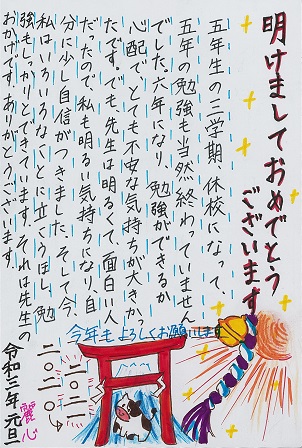 明けましておめでとう
ございます
五年生の三学期、休校になって、
五年の勉強も当然終わっていません
でした。六年になり、勉強ができるか
心配で、とても不安な気持ちが大きかっ
たです。でも、先生は明るくて、面白い人
だったので、私も明るい気持ちになり、自
分に少し自信がつきました。そして今、
私はいろいろなことに立こうほし、勉
強もしっかりとできています。それは先生の
おかげです。ありがとうございます。
今年もよろしくお願いします
二〇二〇
二〇二一
令和三年元旦
麗心